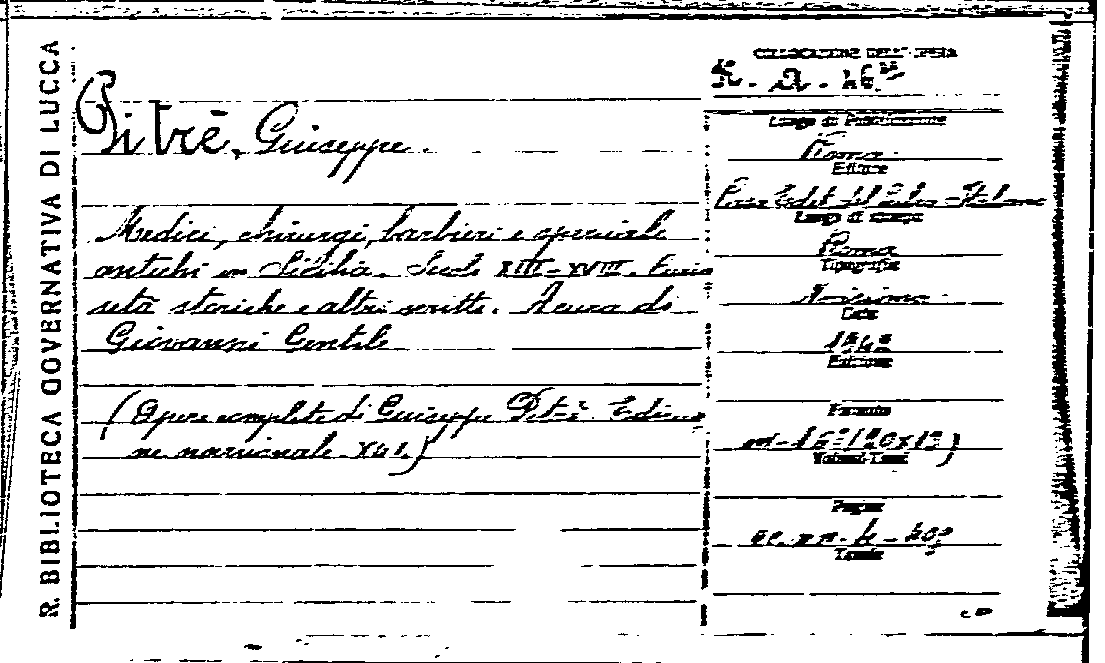 R. BIBLIOTECA GOVERNATIVA DI LUCCA
Pitrè, Giuseppe.
Medici, chirurgi, barbieri e speziali
antichi in Sicilia. Secoli XIII-XVIII. Curio
sità storiche e altri scritti. A cura di
Giovanni Gentile
(Opere complete di Giuseppe Pitrè. Edizio
ne nazionale
COLLOCAZIONE DELL'OPERA
Luogo di Pubblicazione
Roma
Editore
Casa Edit. del Libro Italiano
Luogo di stampa
Roma
Tipografia
Data
1942
Edizione
Formato
in-16° (20x13)
Volumi-Tomi
Pagine
Tavole